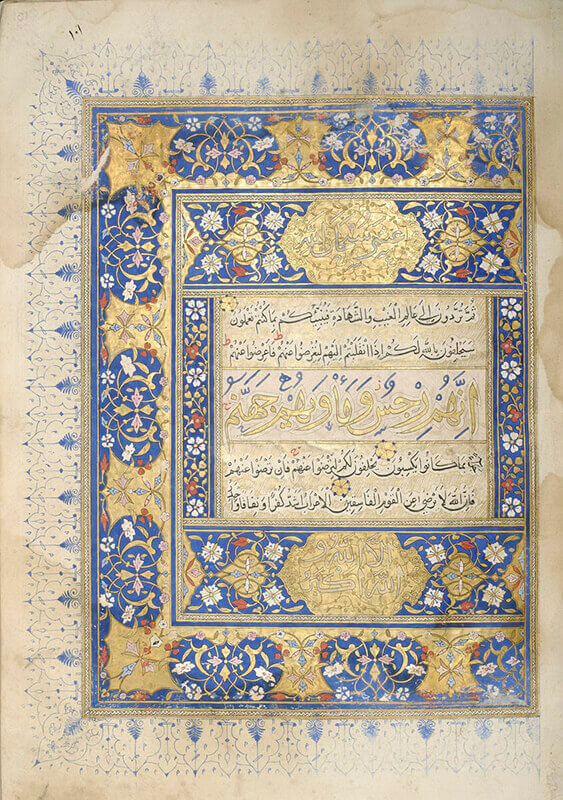 ١٠١
ثُمَّ تُرَدُّونَ إِلَى عَالِمِ الْغَيْبِ وَالشَّهَادَةِ فَيُنَبِّئُكُمْ بِمَا كُنْتُمْ تَعْمَلُونَ
سَيَحْلِفُونَ بِاللَّهِ لَكُمْ إِذَا انْقَلَبْتُمْ إِلَيْهِمْ لِتُعْرِضُوا عَنْهُمْ فَأَعْرِضُوا عَنْهُمْ
إِنَّهُمْ رِجْسٌ وَمَأْوَيهُمْ جَهَنَّمُ
جَزَاءً بِمَا كَانُوا يَكْسِبُونَ يَحْلِفُونَ لَكُمْ لِتَرْضَوْا عَنْهُمْ فَإِنْ تَرْضَوْا عَنْهُمْ
فَإِنَّ اللَّهَ لَا يَرْضَى عَنِ الْقَوْمِ الْفَاسِقِينَ الْأَعْرَابُ أَشَدُّ كُفْرًا وَنِفَاقًا وَأَجْدَرُ
الا الله و
الله اكبر